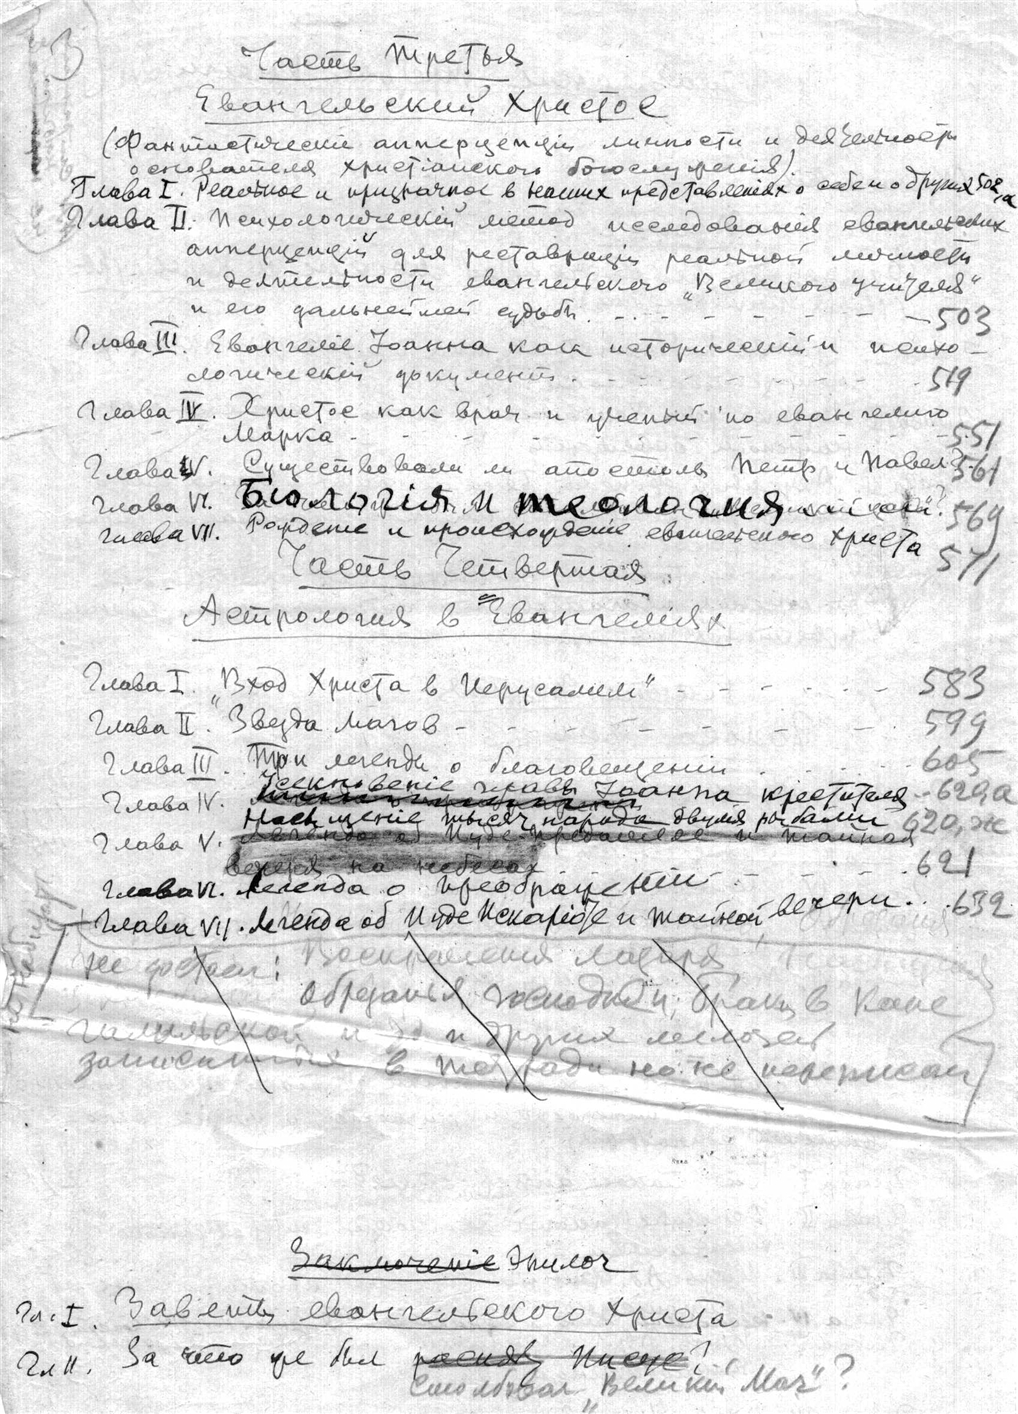 3
Часть Третья
Евангельский Христос
(Фантастическия апперцепціи личности и деятельности
основателя христіанского богослуженія).
Глава I. Реальное и призрачное в наших представленіях о себе и о других 502,а
Глава II. Психологическій метод исследованія евангельских
апперцепцій для реставраціи реальной личности
и деятельности евангельского „Великого учителя"
и его дальнейшей судьбы. - - - - - - - 503
Глава III. Евангеліе Іоанна как историческій и психо-
логическій документ. - - - - - - - 519
Глава IV. Христос как врач и ученый по евангелию
Марка - - - - - - - 551
Глава V. Существовали ли апостолы Петр и Павел? 561
Глава VI. Біологія и теология 569
Глава VII. Рождение и происхожденіе евангельского Христа 571
Часть Четвертая
Астрология в Евангеліях
Глава I. „Вход Христа в Иерусалим" - - - - - 583
Глава II. Звезда магов - - - - - - - 599
Глава III. Три легенды о благовещеніи . . . . . . 605
Глава IV. Усекновеніе главы Іоанна крестителя - 620,а
Насыщеніе тысяч народа двумя рыбами 620,ж
Глава V. Легенда об Иуде и тайная
вечеря на небесах . . . . . 621
Глава VI. Легенда о преображеніи
Глава VII. Легенда об Иуде Искаріоте и тайной вечери. . . 632
Не достает: Воскрешения Лазаря,
обрезанья господня, брака в Кане
Галилейской и др и других мелочей
записанных в тетради но не переписан
Заключеніе Эпилог
Гл. I. Заветы евангельского Христа
Гл II. За что же был распят Иисус?
столбован „Великій Маг"?